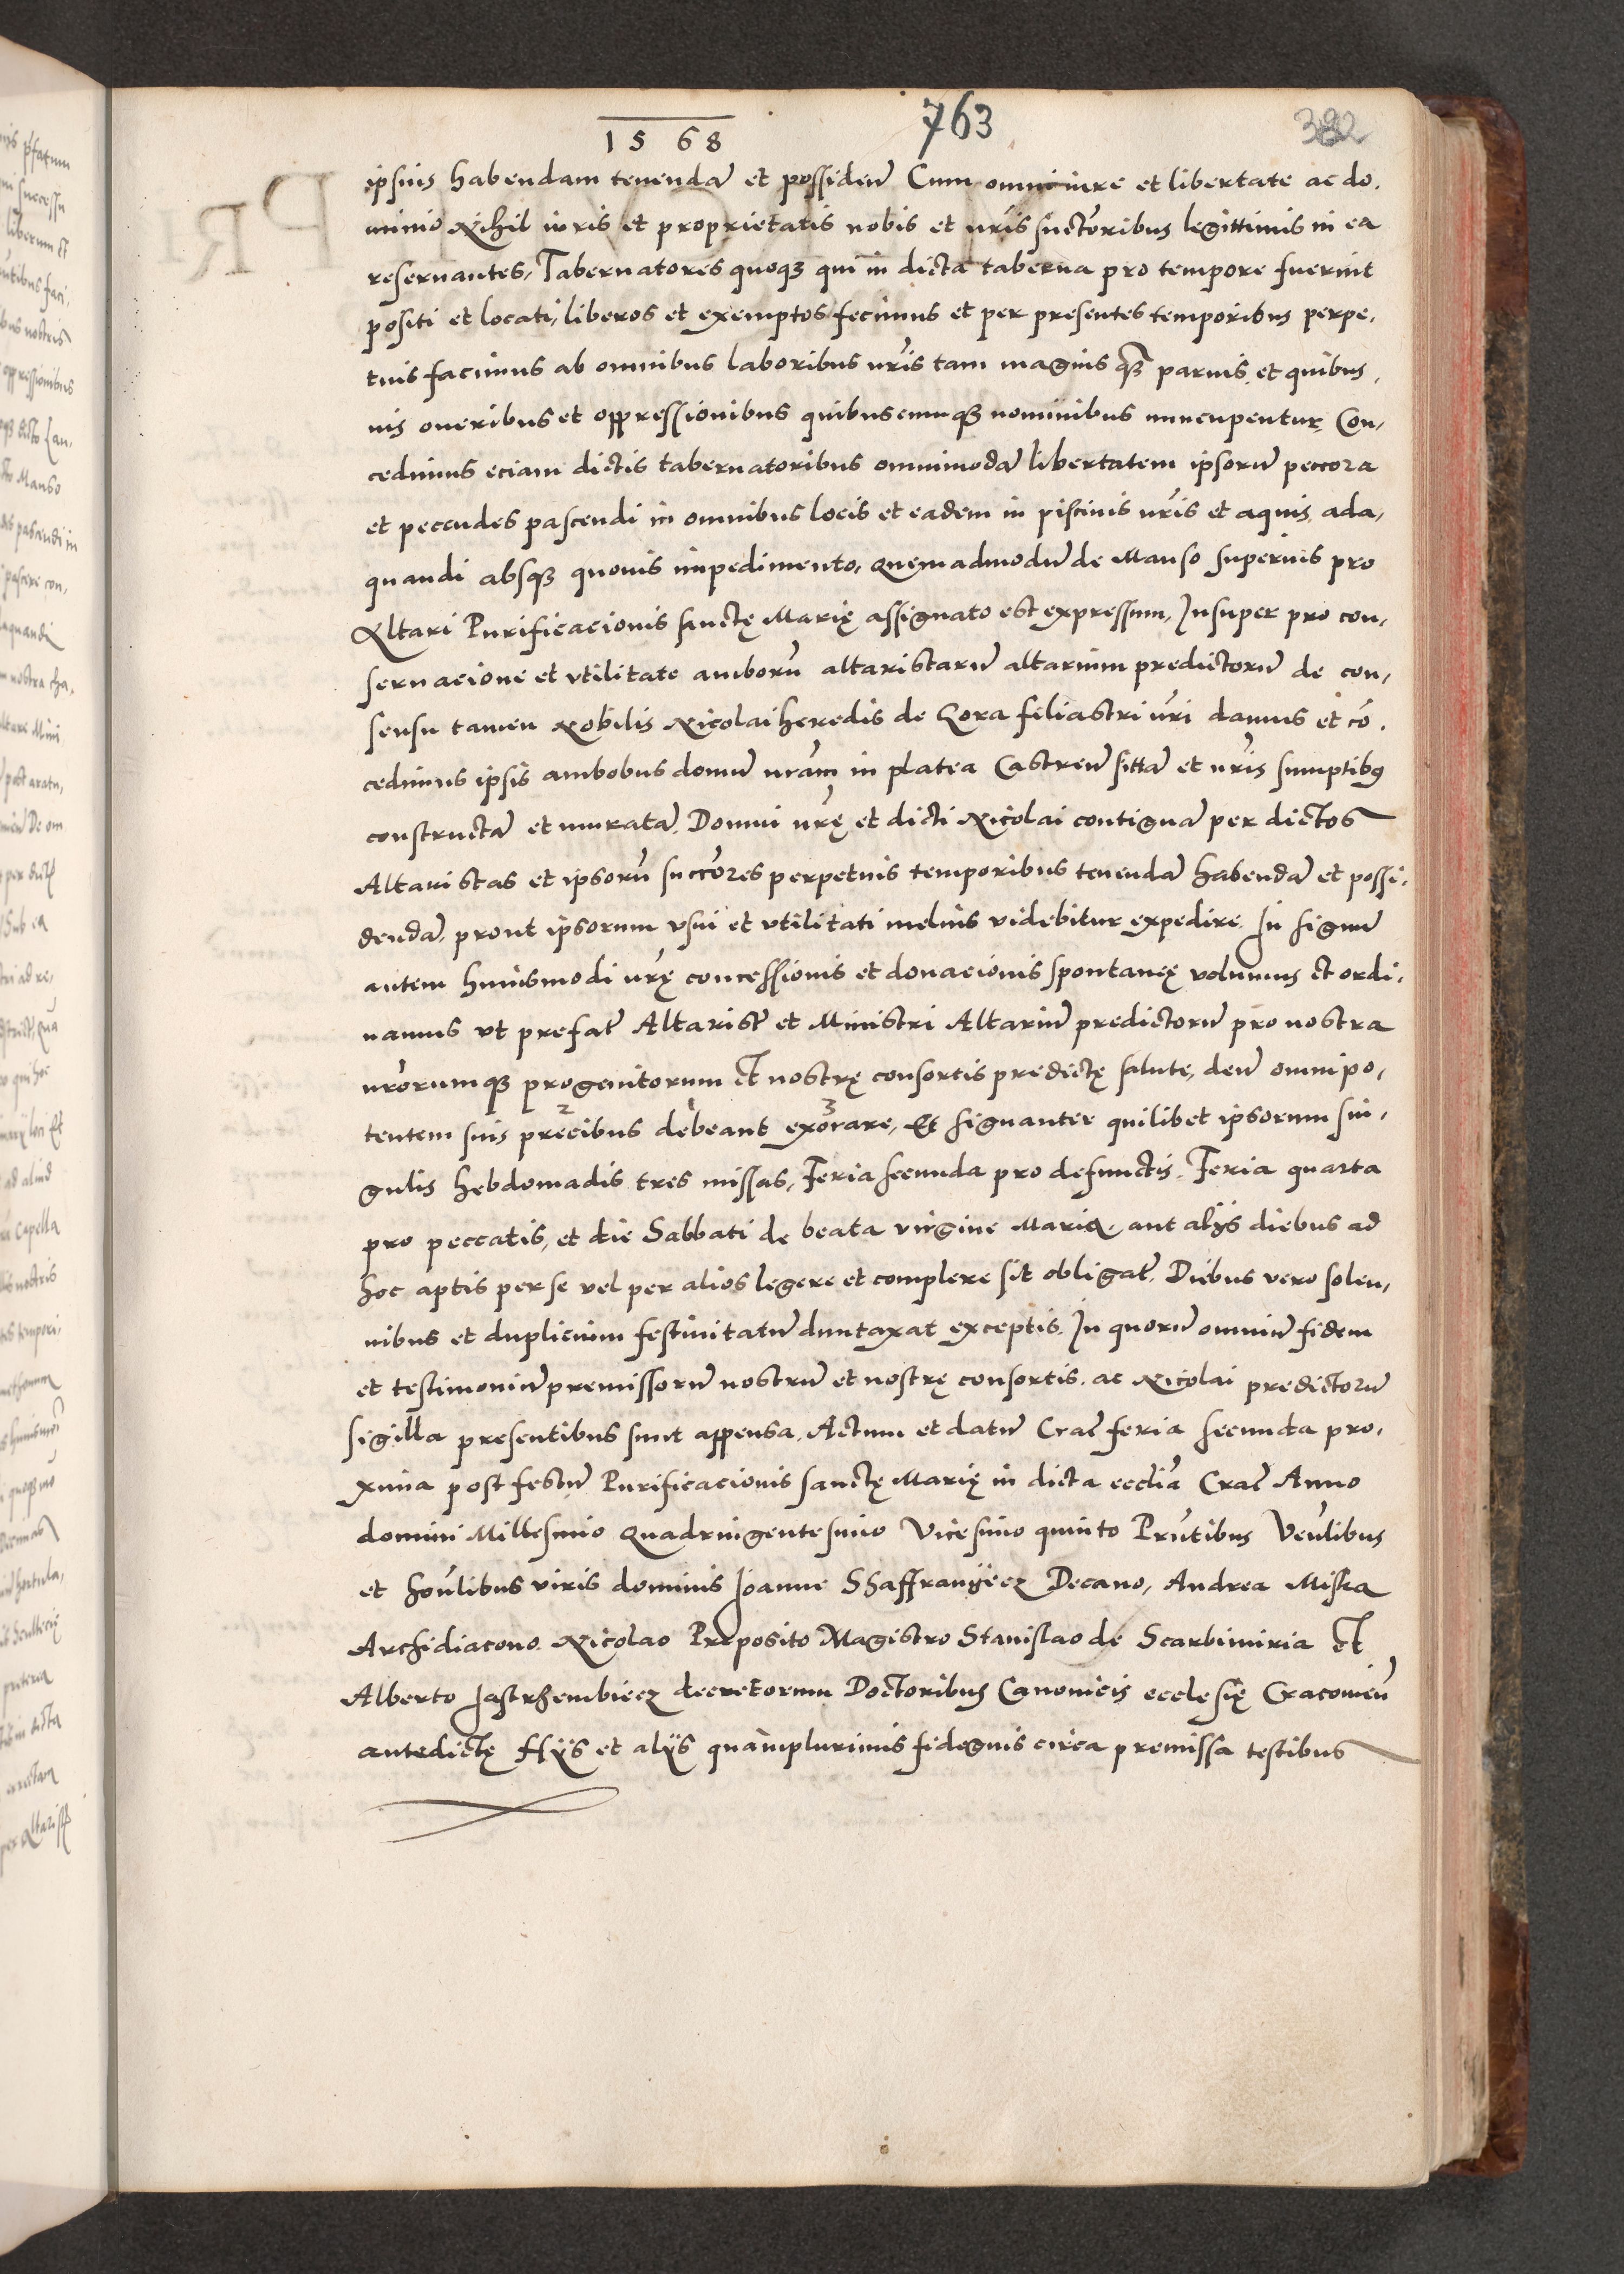 1568
763
382
ipsius habendam tenendā et possidenđ Cum omni iure et libertate ac do,
minio Nihil iuris et proprietatis nobis et nr̄is suctōribus legittimis in ea
reseruantes, Tabernatores quoqȝ qui in dicta taberna pro tempore fuerint
positi et locati, liberos et exemptos fecimus et per presentes temporibus perpe,
tuis facimus ab omnibus laboribus nr̄is tam magnis q̄ȝ paruis, et quibus,
uis oneribus et oppressionibus quibuscumqȝ nominibus nuncupentur, Con,
cedimus eciam dictis tabernatoribus omnimodā libertatem ipsorū peccora
et peccudes pascendi in omnibus locis et eadem in piscinis nr̄is et aquis ada,
quandi absqȝ quouis impedimento, quemadmodū de Manso superius pro
Altari Purificacionis sanctę Marię assignato est expressum, Insuper pro con,
seruacione et vtilitate amborū altaristarū altarium predictorū de con,
sensu tamen Nobilis Nicolai heredis de Gora filiastri nr̄i damus et cō,
cedimus ipsis ambobus domū nr̄am in platea Castreñ sittā et nr̄is sumptibȝ
constructā et muratā, Domui nr̄ę et dicti Nicolai contiguā per dictos
Altaristas et ipsorū succ̄ores perpetuis temporibus tenendā habendā et possi,
dendā, prout ipsorum vsui et vtilitati melius videbitur expedire. In signū
autem huiusmodi nr̄ę concessionis et donacionis spontanęę volumus et ordi,
namus vt prefat̄ Altarist̄ et Ministri Altariū predictorū pro nostra
nr̄orumqȝ progenitorum Et nostrę consortis predictę salute, deū omnipo,
2 1 3
tentem suis precibus debeant exorare, Et signanter quilibet ipsorum sin,
gulis hebdomadis tres missas, Feria secunda pro defunctis, Feria quarta
pro peccatis, et die Sabbati de beata virgine Maria, aut alÿs diebus ad
hoc aptis per se vel per alios legere et complere sit obligat̄, Diebus vero solen,
nibus et duplicium festiuitatū duntaxat exceptis. In quorū omniū fidem
et testimoniū premissorū nostrū et nostrę consortis, ac Nicolai predictorū
sigilla presentibus sunt appensa, Actum et datū Crac̄ feria secunda pro,
xima post festū Purificacionis sanctę Marię in dicta ecclīa Crac̄ Anno
domini Millesimo Quadringentesimo Vicesimo quinto Prn̄tibus Ven̄libus
et hon̄libus viris dominis Joanne Shaffranÿecz Decano, Andrea Miska
Archidiacono, Nicolao Preposito Magistro Stanislao de Scarbimiria Et
Alberto Jastrzembiecz decretorum Doctoribus Canonicis ecclesię Cracouieñ
antedictę Hÿs et alÿs quamplurimis fidegnis circa premissa testibus